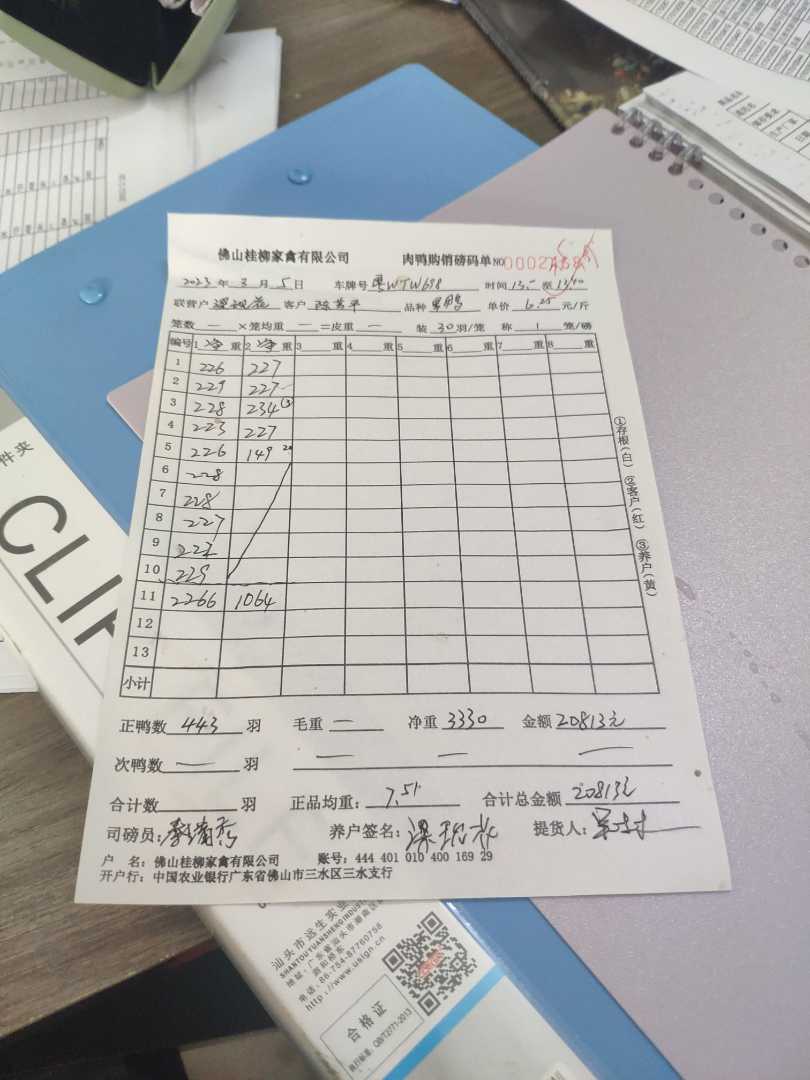 佛山桂柳家禽有限公司 肉鸭购销磅码单 NO
2023年3月5日 车牌号 粤WTW698 时间 13:- 至 13:40
联营户 客户 品种 单价 6.25 元/斤
笼数 — ×笼均重 — =皮重 — 装 30 羽/笼 称 1 笼/磅
编号 1 净 重 2 净 重 3 重 4 重 5 重 6 重 7 重 8 重
1 226 227
2 229 227
3 228 234
4 223 227
5 226 149
6 228
7 228
8 227
9
10
11 2266 1064
12
13
小计
①存根(白) ②客户(红) ③养户(黄)
正鸭数 443 羽 毛重 — 净重 3330 金额 20813元
次鸭数 — 羽 — — —
合计数 羽 正品均重: 7.51 合计总金额 20813元
司磅员: 养户签名: 提货人:
户 名: 佛山桂柳家禽有限公司 账号: 444 401 010 400 169 29
开户行: 中国农业银行广东省佛山市三水区三水支行
件夹
CLI
汕头市远生实业
SHANTOUYUANSHENGINDUS
电话: 86-754-87760758
http://www.usign.cn
合格证
执行标准: QB/T2771-2013